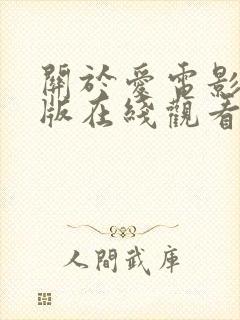 關於愛電影
版在綫觀看
人間武庫